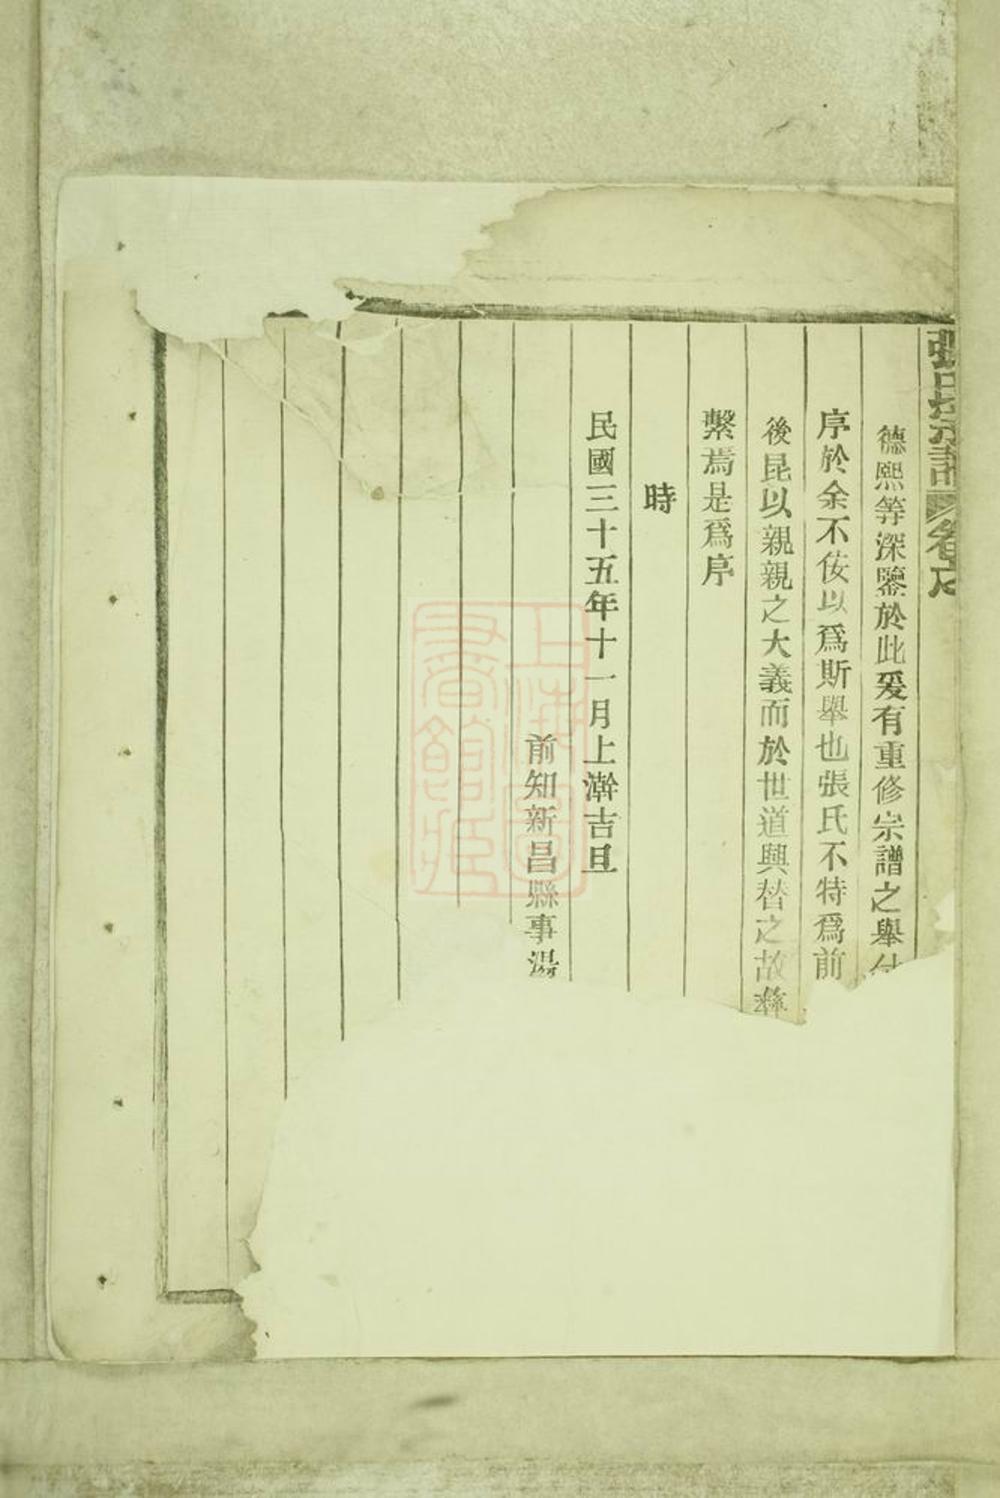 張氏宗譜 卷首
德熙等深鑒於此爰有重修宗譜之舉
序於余不佞以爲斯舉也張氏不特爲前
後昆以親親之大義而於世道興替之故彝
繫焉是爲序
時
民國三十五年十一月上澣吉旦
前知新昌縣事湯
上海圖書館藏